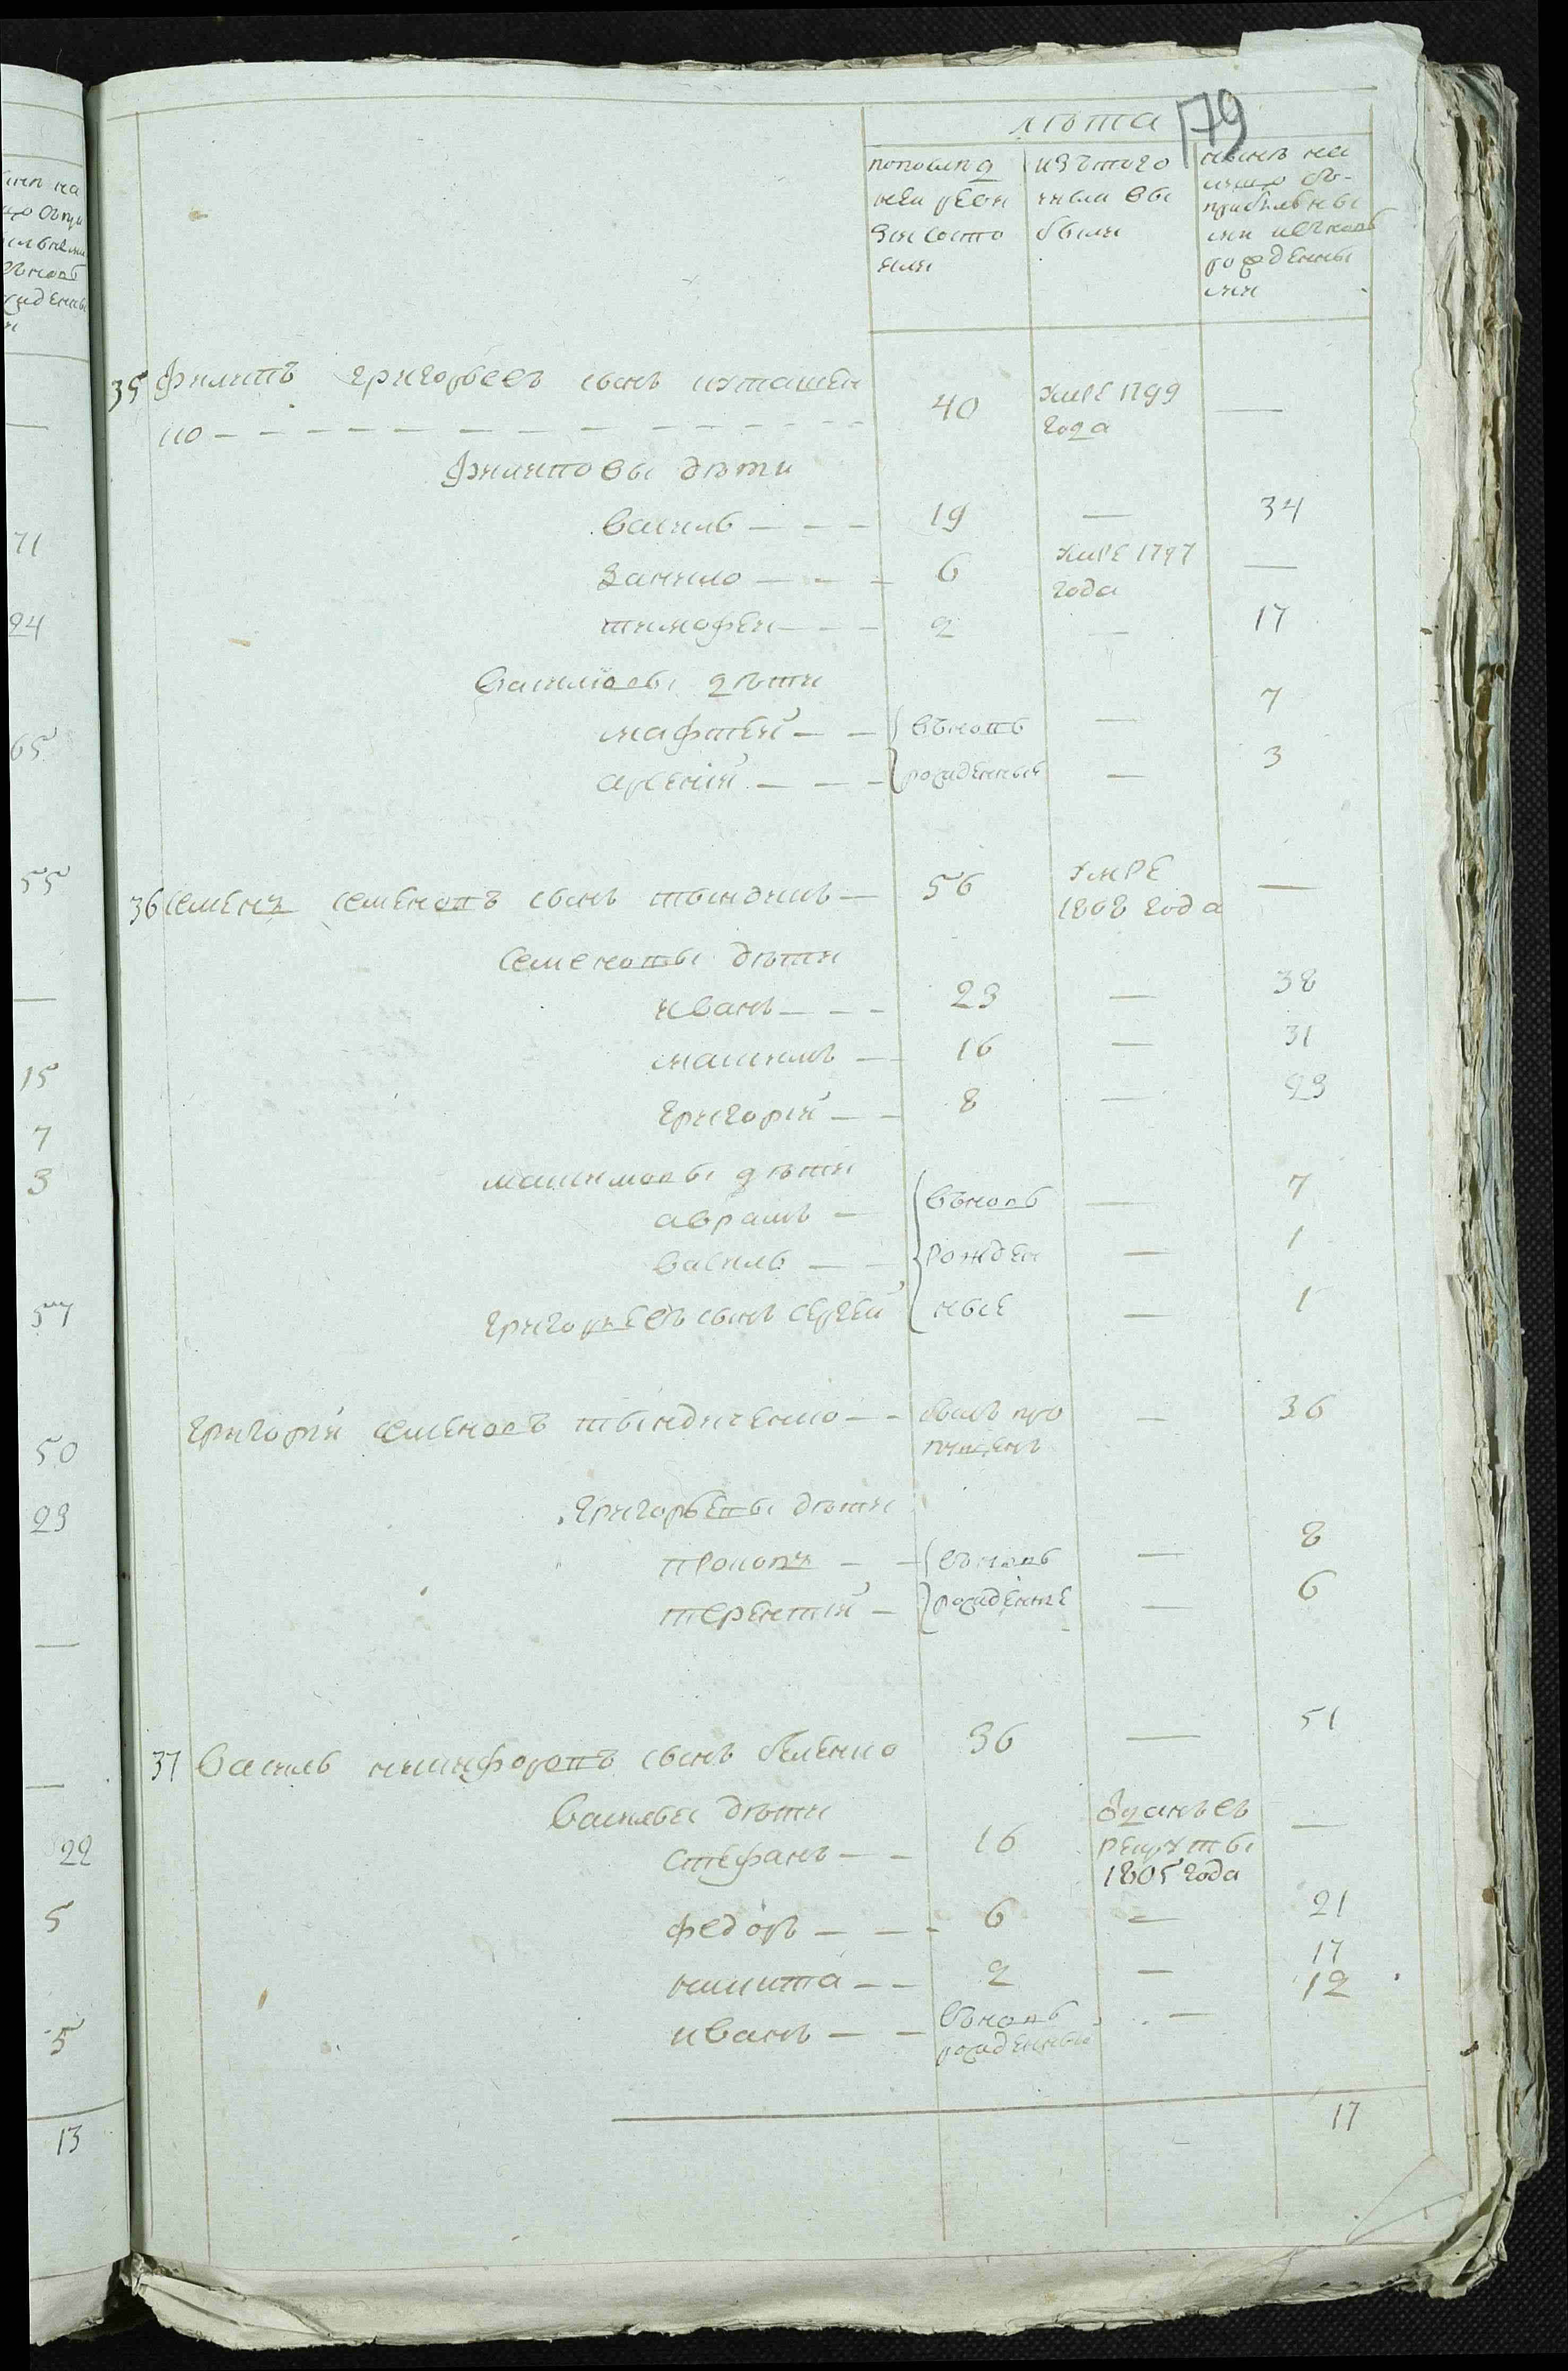 лѣта
79
попослѣд
ней реви
зіи состо
яли
изъ того
числа вы
были
нынѣ на
лицо съ
прибылы
ми и вновь
рожденны
ми
35 филипъ григорьевъ сынъ
ко — 40 умре 1799 года —
филиповы дѣти
василь — 19 — 34
данило — 6 умре 1797 года —
тимофей — 2 — 17
василіовы дѣти
мафтей — вновь — 7
арсеній — рожденные — 3
36 семенъ семеновъ сынъ тындикъ — 56 умре 1808 года —
семеновы дѣти
иванъ — 23 — 38
максимъ — 16 — 31
григорій — 8 — 23
максимовы дѣти
аврамъ — вновь — 7
василь — рожден — 1
григорьевъ сынъ сергей ные — 1
григорій семеновъ тындиченко — былъ про — 36
пущенъ
григорьевы дѣти
прокопъ — вновь — 8
терентій — рожденные — 6
37 василь никифоровъ сынъ беленко 36 — 51
васильвы дѣти
стефанъ — 16 одданъ въ рекруты 1805 года —
федоръ — 6 — 21
никита — 2 — 17
иванъ — вновь рожденный — 12
17
71
24
65
55
—
15
7
3
57
50
23
—
—
22
5
5
13